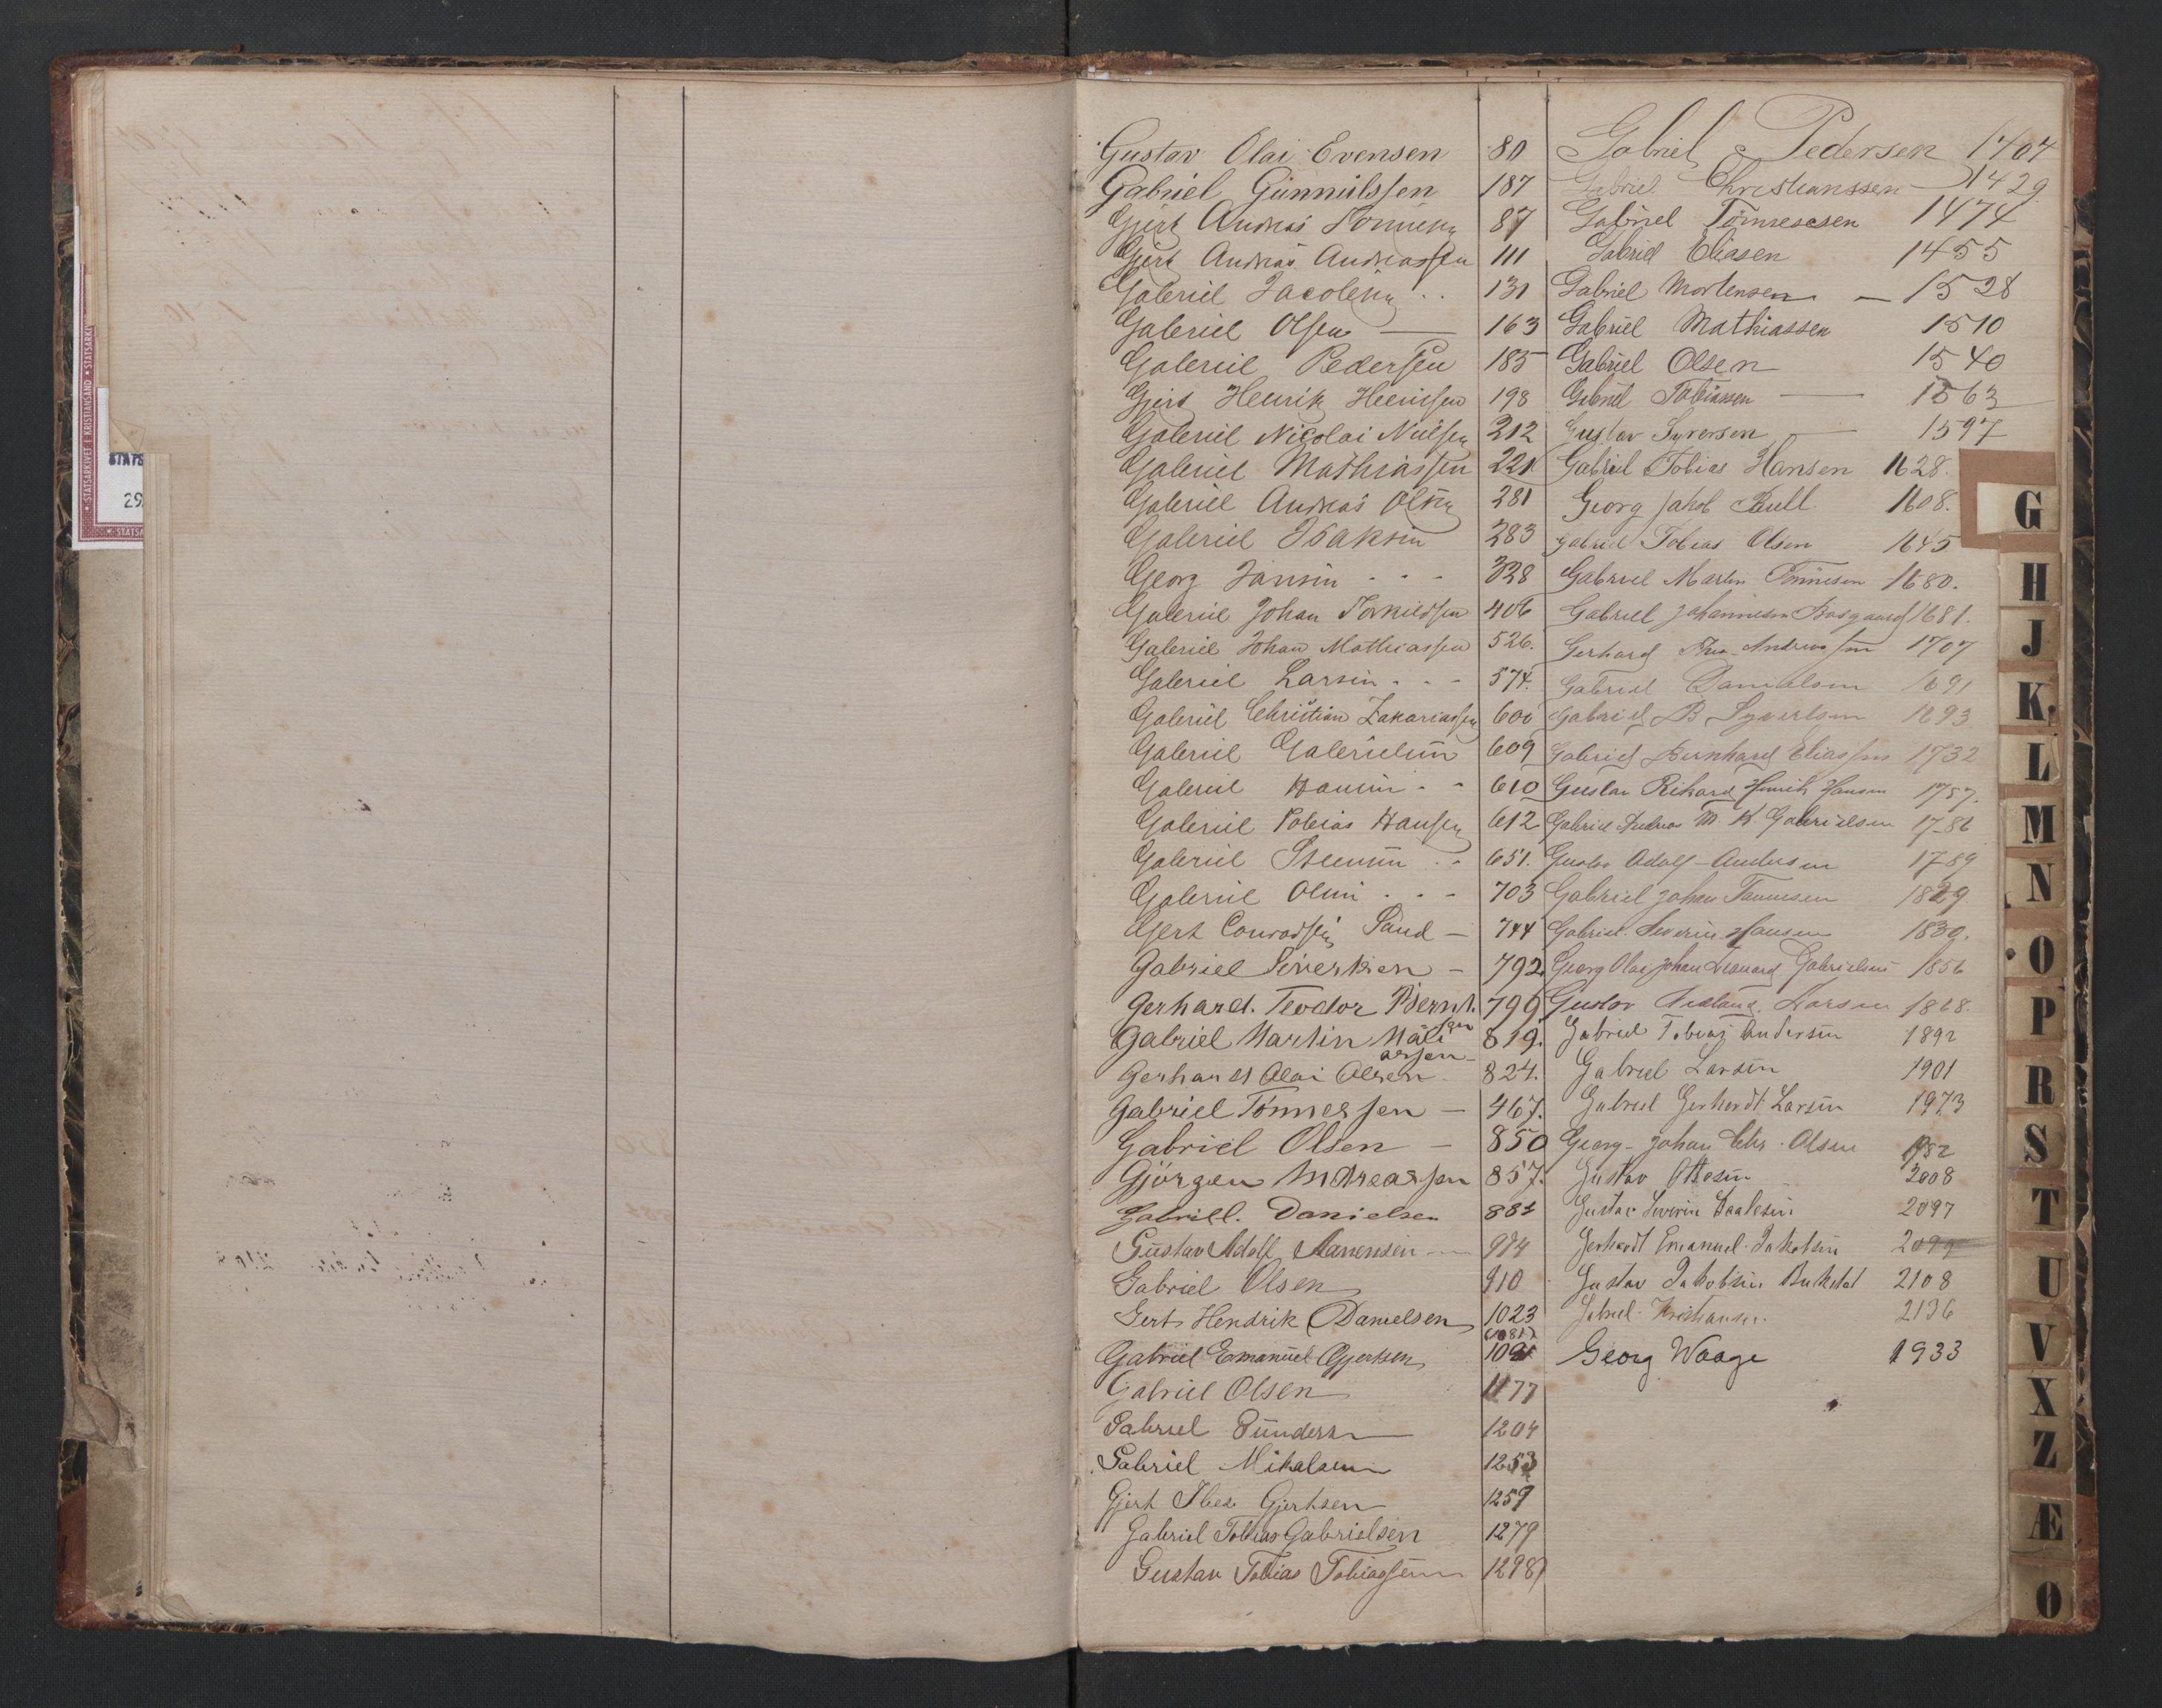 Gustav Olai Evensen 80
Gabriel Gunnulssen 187
Gjert Andreas 87
Gjert Andreas Andreassen 111
Gabriel Jacobsen 131
Gabriel Olsen 163
Gabriel Pedersen 185
Gjert Henrik 198
Gabriel Nicolai Nielsen 212
Gabriel Mathiassen 221
Gabriel Andreas Olsen 281
Gabriel Isaksen 283
Georg Jansen 328
Gabriel Johan 406
Gabriel Johan Mathiassen 526.
Gabriel Larsen 574.
Gabriel Christian Zakariassen 600
Gabriel Gabrielsen 609
Gabriel Hansen 610
Gabriel Tobias Hansen 612
Gabriel 651.
Gabriel Olsen 703
Gjert Conradsen Sand — 744
Gabriel Siverksen — 792
Gerhard. Teodor Bernt. 799
sen
Gabriel Martin Mati 819.
assen —
Gerhardt Olai Olsen 824.
Gabriel Tønnessen — 467.
Gabriel Olsen — 850
Gjörgen Andreassen 857.
Gabriel. Danielsen 882
Gustav Adolf Aanensen 974
Gabriel Olsen 910
Gert Hendrik Danielsen 1023
(1081)
Gabriel Emanuel Gjertsen 1091
Gabriel Olsen 1177
Gabriel Gundersen 1204
Gabriel Mikalsen 1253
Gjert Ibes Gjertsen 1259
Gabriel Tobias Gabrielsen 1279
Gustav Tobias Tobiassen 1298
Gabriel Pedersen 1404
Gabriel Christianssen 1429
Gabriel Tønnessen 1474
Gabriel Eliasen 1455
Gabriel Mortensen — 1528
Gabriel Mathiassen 1510
Gabriel Olsen 1540
Gabriel Tobiassen — 1563
Gustav Syversen — 1597
Gabriel Tobias Hansen 1628.
Georg Jakob 1608.
Gabriel Tobias Olsen 1645
Gabriel Martin Tønnesen 1680.
Gabriel Johannesen 1681.
Gerhard Andreassen 1707
Gabriel Danielsen 1691
Gabriel B Syvertsen 1693
Gabriel Bernhard Eliassen 1732
Gustav Rikard Henrik Hansen 1757.
Gabriel Andreas M. K. Gabrielsen 1786
Gustav Adolf Andersen 1789
Gabriel Johan Tønnesen 1829
Gabriel Severin Hansen 1830.
Georg Olai Johan Leonard Gabrielsen 1856
Gustav Larsen 1868.
Gabriel Tobias Andersen 1892
Gabriel Larsen 1901
Gabriel Gerhardt Larsen 1973
Georg Johan Chr. Olsen 1982
Gustav Ottesen 2008
Gustav Severin Paalesen 2097
Gerhardt Emanuel Jakobsen 2099
Gustav Jakobsen 2108
Gabriel Kristiansen 2136
Georg Waage 1933
G
H
J
K
L
M
N
O
P
R
S
T
U
V
X
Z
Æ
Ø
STATSARKIVET I KRISTIANSAND ★ STATSARKI
STATS
29
★ STATSA